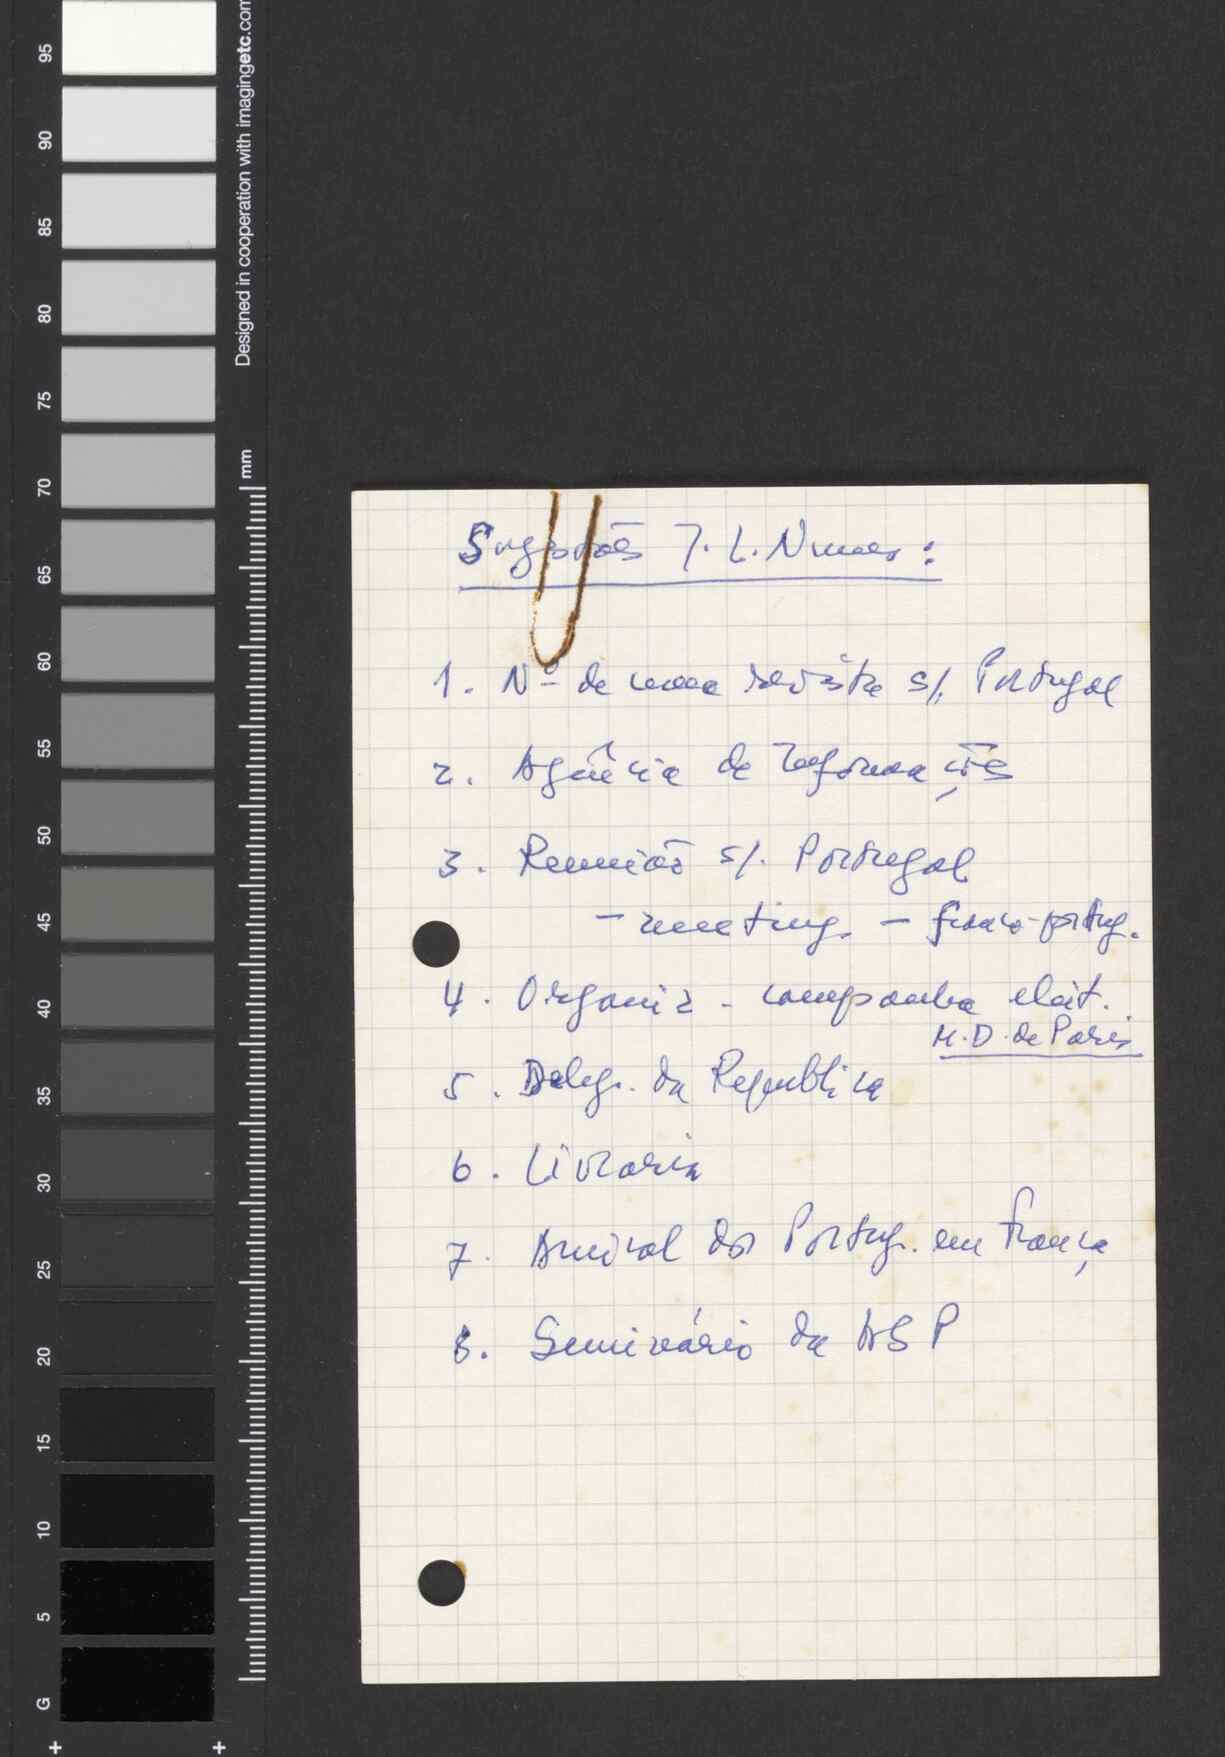 95
90
85
80
75
70
65
60
55
50
45
40
35
30
25
20
15
10
5
G
Designed in cooperation with imagingetc.com
mm
Sugestões J. L. Nunes:
1. Nº de uma revista s/. Portugal
2. Agência de Informações
3. Reunião s/. Portugal
- meeting. - franco-portug.
4. Organiz - campanha eleit.
M.D. de Paris
5. Deleg. da Republica
6. Livraria
7. Anival dos Portug. em França
8. Seminário da ASP